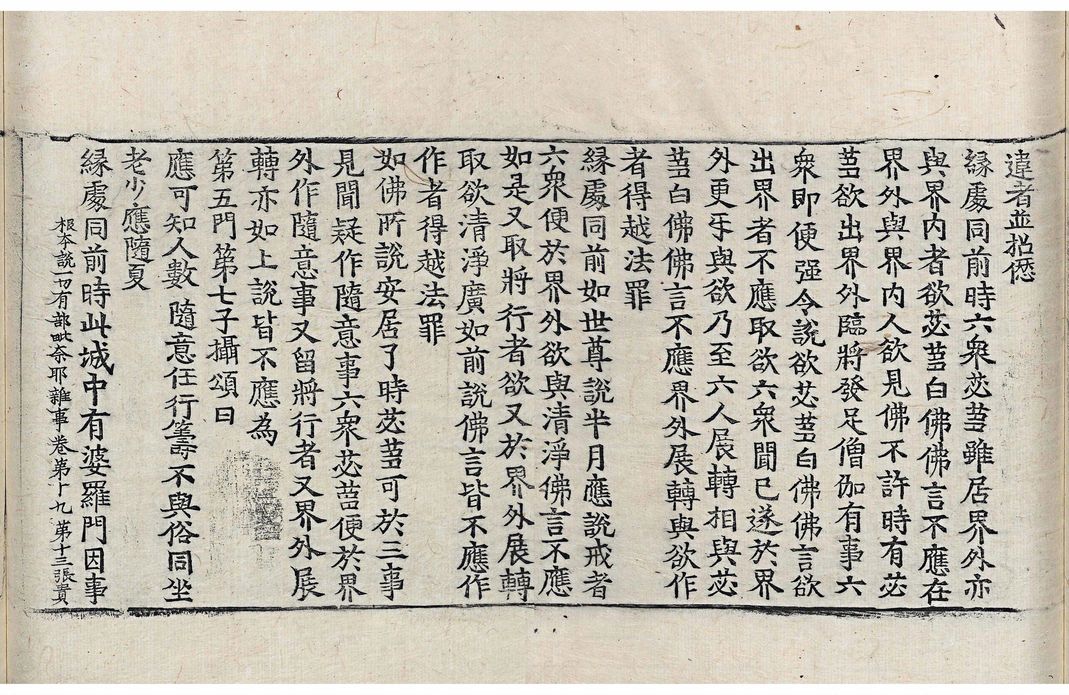 違者並招愆
緣處同前時六衆苾芻雖居界外亦
與界內者欲苾芻白佛佛言不應在
界外與界內人欲見佛不許時有苾
芻欲出界外臨將發足僧伽有事六
衆即便强令說欲苾芻白佛佛言欲
出界者不應取欲六衆聞已遂於界
外更互與欲乃至六人展轉相與苾
芻白佛佛言不應界外展轉與欲作
者得越法罪
緣處同前如世尊說半月應說戒者
六衆便於界外欲與清淨佛言不應
如是又取將行者欲又於界外展轉
取欲清淨廣如前說佛言皆不應作
作者得越法罪
如佛所說安居了時苾芻可於三事
見聞疑作隨意事六衆苾芻便於界
外作隨意事又留將行者又界外展
轉亦如上說皆不應為
第五門第七子攝頌曰
應可知人數 隨意任行籌 不與俗同坐
老少應隨夏
緣處同前時此城中有婆羅門因事
根本說一切有部毗奈耶雜事卷第十九 第十三張 貴